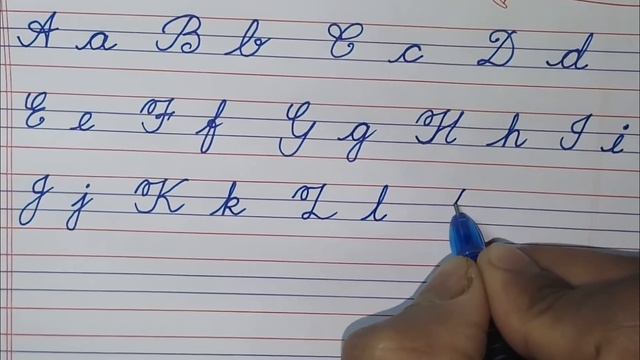 A a B b C c D d
E e F f G g H h I i
J j K k L l